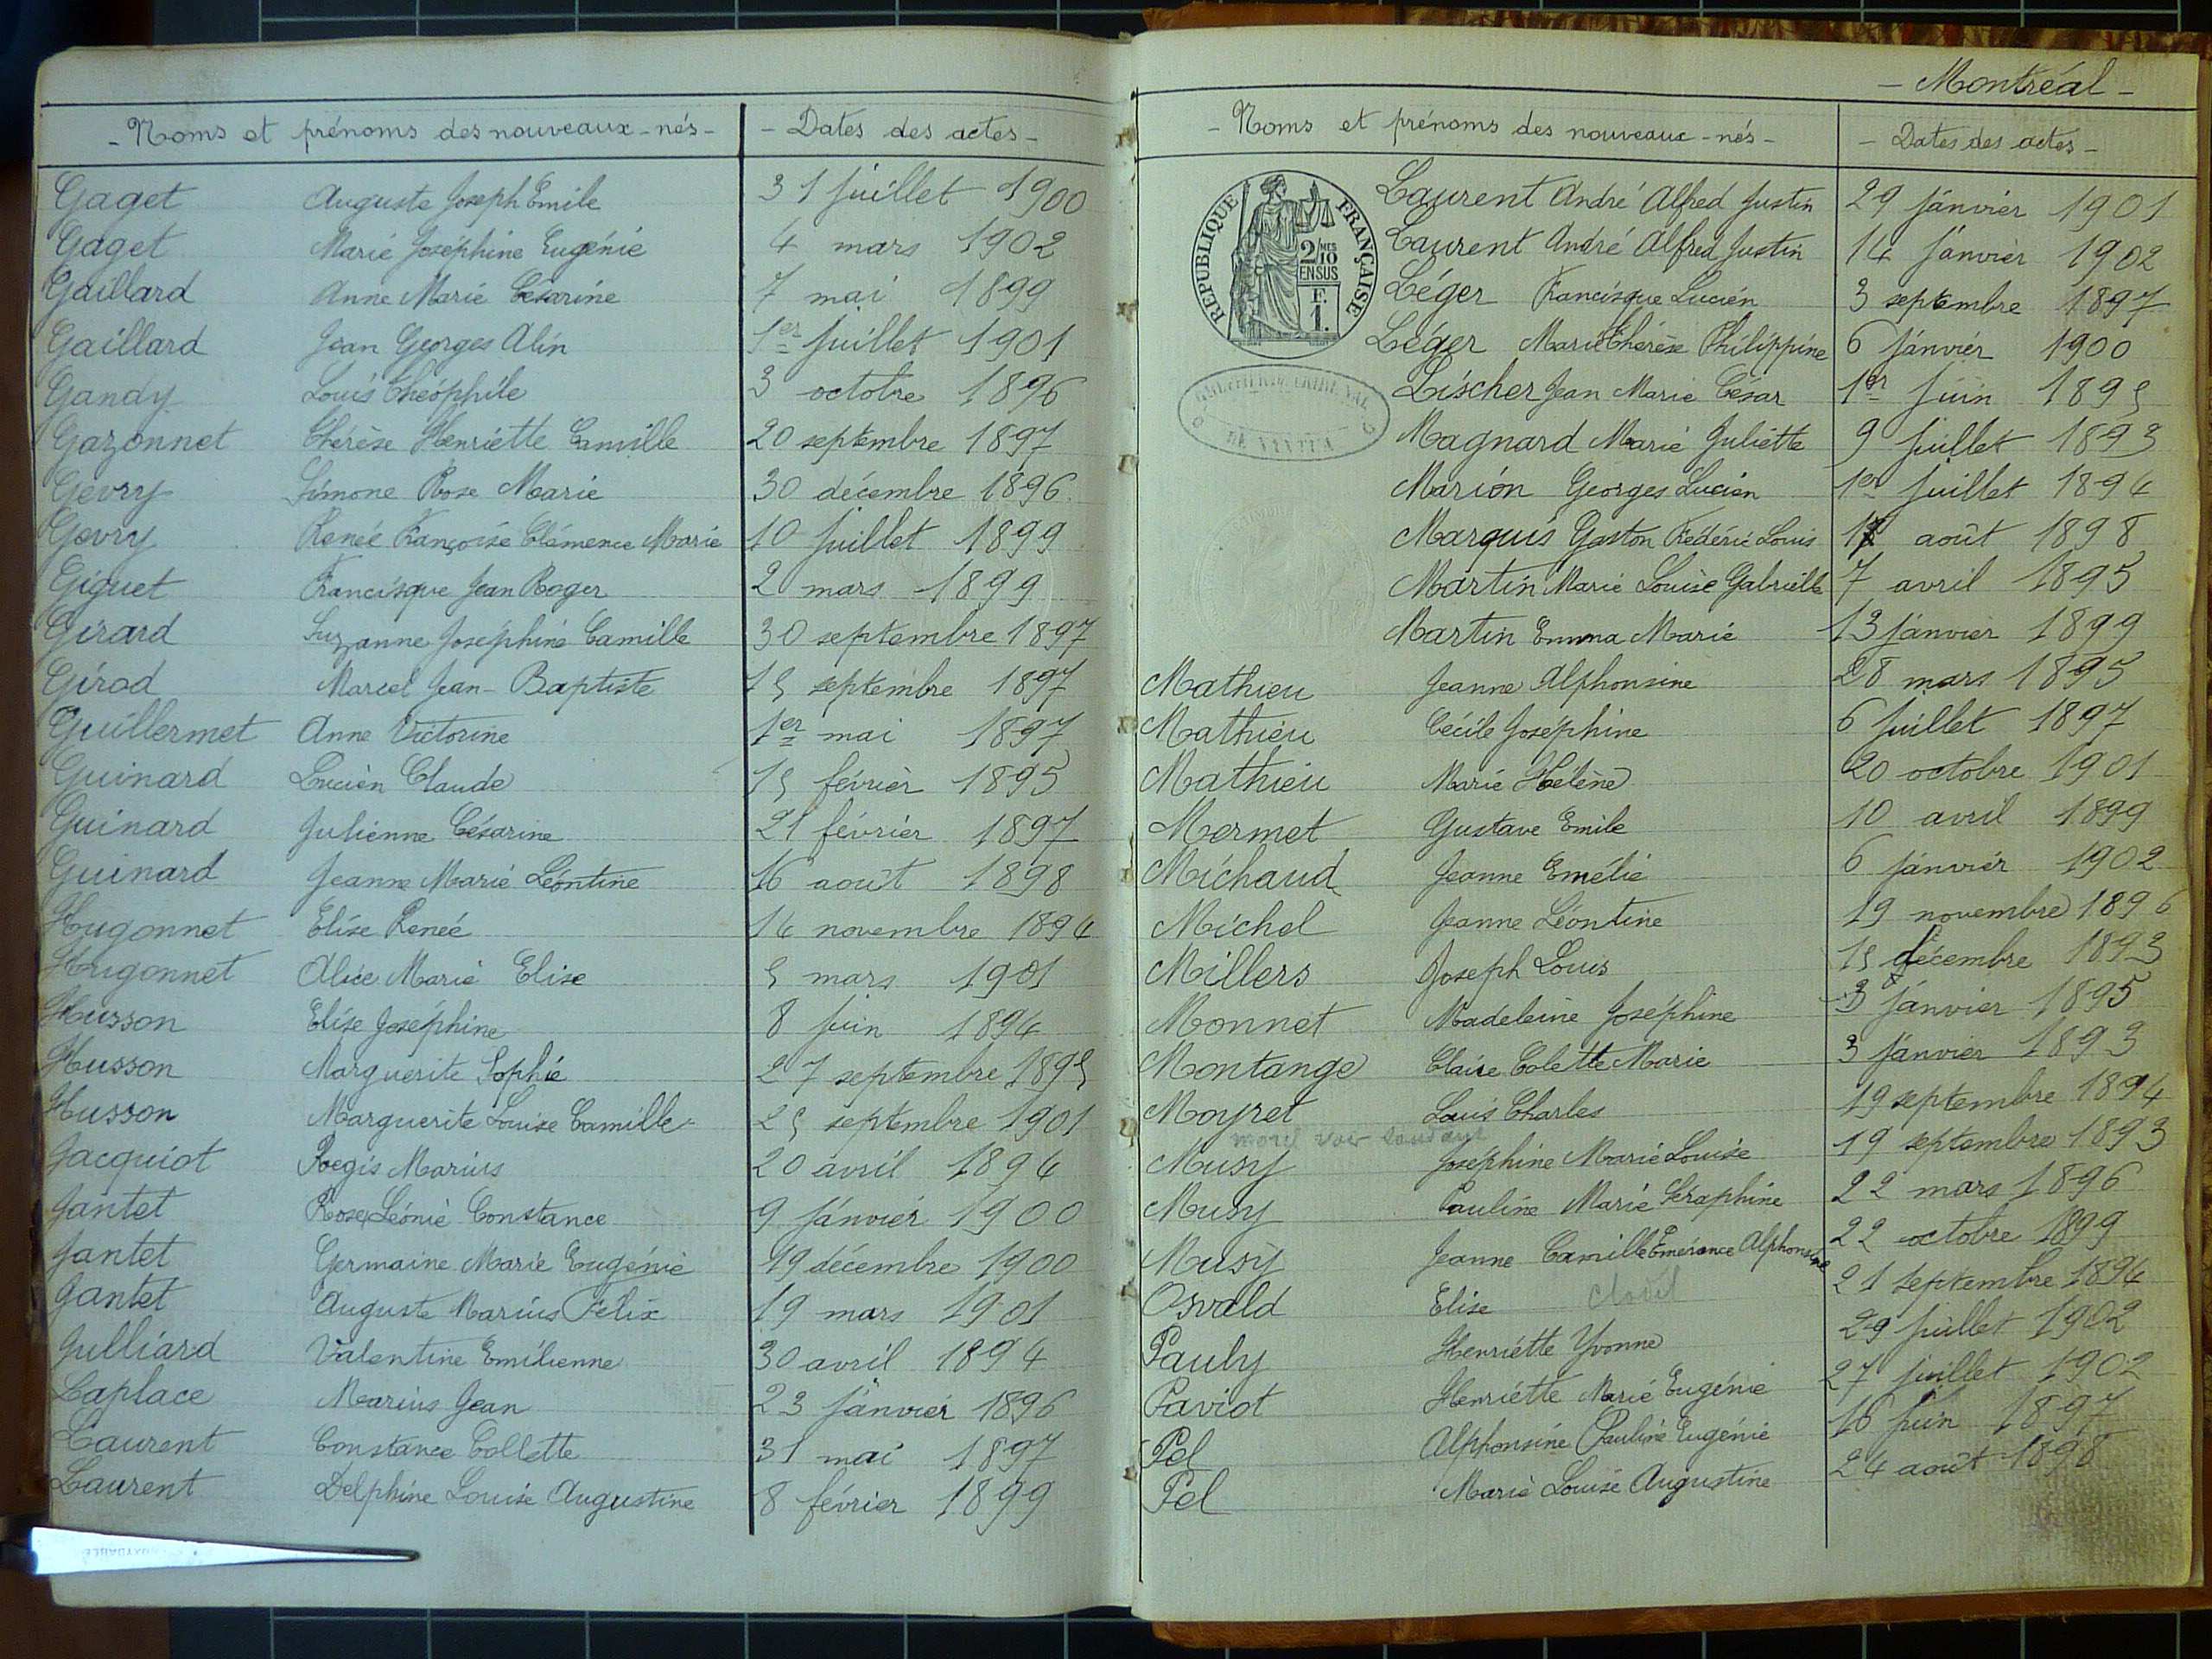 - Noms et prénoms des nouveaux-nés - - Dates des actes -
Gaget Auguste Joseph Emile 31 juillet 1900
Gaget Marie Joséphine Eugénie 4 mars 1902
Gaillard Anne Marie Césarine 7 mai 1899
Gaillard Jean Georges Alin 1er juillet 1901
Gandy Louis Théophile 3 octobre 1896
Gazonnet Thérèse Henriette Camille 20 septembre 1897
Gevry Simone Rose Marie 30 décembre 1896
Gevry Renée Françoise Clémence Marie 10 juillet 1899
Giguet Francisque Jean Roger 2 mars 1899
Girard Suzanne Joséphine Camille 30 septembre 1897
Girod Marcel Jean-Baptiste 15 septembre 1897
Guillermet Anne Victorine 1er mai 1897
Guinard Lucien Claude 15 février 1895
Guinard Julienne Césarine 21 février 1897
Guinard Jeanne Marie Léontine 16 août 1898
Hugonnet Elise Renée 14 novembre 1894
Hugonnet Alice Marie Elise 5 mars 1901
Husson Elise Joséphine 8 juin 1894
Husson Marguerite Sophie 27 septembre 1895
Husson Marguerite Louise Camille 25 septembre 1901
Jacquiot Regis Marius 20 avril 1894
Jantet Rose Léonie Constance 9 janvier 1900
Jantet Germaine Marie Eugénie 19 décembre 1900
Jantet Auguste Marius Félix 19 mars 1901
Julliard Valentine Emilienne 30 avril 1894
Laplace Marius Jean 23 janvier 1896
Laurent Constance Collette 31 mai 1897
Laurent Delphine Louise Augustine 8 février 1899
- Montréal -
- Noms et prénoms des nouveaux-nés - - Dates des actes -
REPUBLIQUE FRANÇAISE
2/10 MES
EN SUS
F.
1.
Laurent André Alfred Justin 29 janvier 1901
Laurent André Alfred Justin 14 janvier 1902
Léger Francisque Lucien 3 septembre 1897
Léger Marie Thérèse Philippine 6 janvier 1900
Lischer Jean Marie César 1er juin 1895
Magnard Marie Juliette 9 juillet 1893
Marion Georges Lucien 1er juillet 1894
Marquis Gaston Frédéric Louis août 1898
Martin Marie Louise Gabrielle 7 avril 1895
Martin Emma Marie 13 janvier 1899
Mathieu Jeanne Alphonsine 28 mars 1895
Mathieu Cécile Joséphine 6 juillet 1897
Mathieu Marie Hélène 20 octobre 1901
Mermet Gustave Emile 10 avril 1899
Michaud Jeanne Emélie 6 janvier 1902
Michel Jeanne Léontine 19 novembre 1896
Millers Joseph Louis 15 décembre 1893
Monnet Madeleine Joséphine 3 janvier 1895
Montange Claire Colette Marie 3 janvier 1893
Moyret Louis Charles 19 septembre 1894
voir
Musy Joséphine Marie Louise 19 septembre 1893
Musy Pauline Marie Séraphine 22 mars 1896
Musy Jeanne Camille Emérance Alphonsine 22 octobre 1899
Osvald Elise 21 septembre 1894
Pauly Henriette Yvonne 29 juillet 1902
Paviot Henriette Marie Eugénie 27 juillet 1902
Pel Alphonsine Pauline Eugénie 16 juin 1897
Pel Marie Louise Augustine 24 août 1898